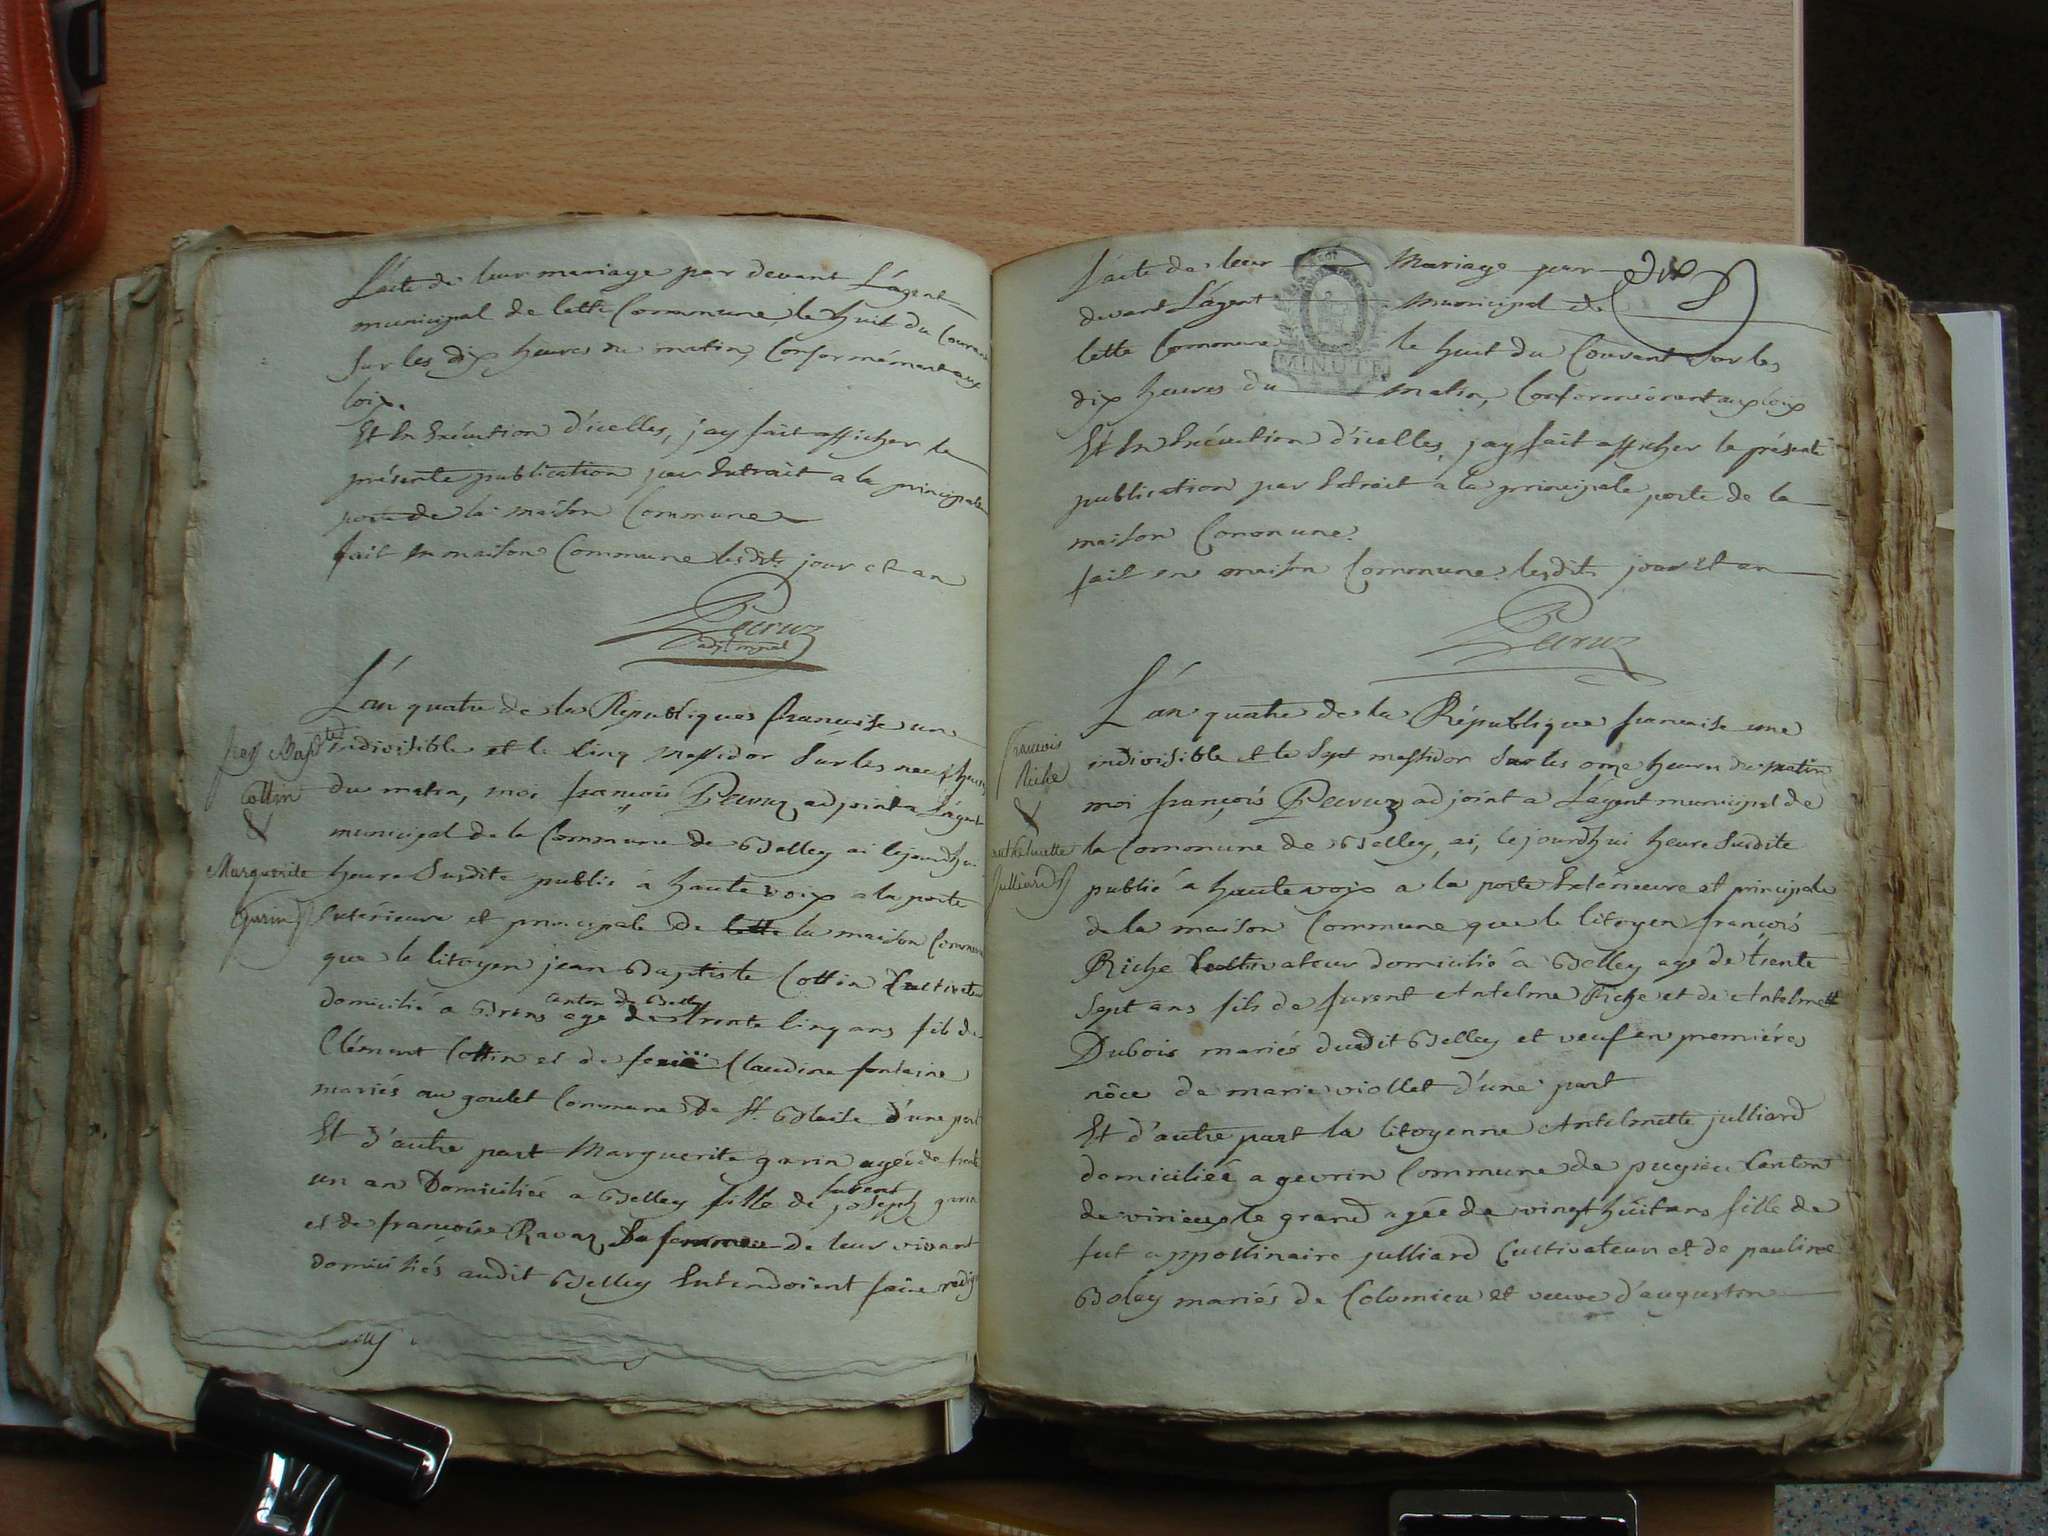 L'acte de leur mariage par devant L'agent
municipal de cette Commune, le huit du Courant
Sur les dix heures du matin, Conformément aux
loix.
Et En Exécution d'icelles, j'ay fait afficher la
présente publication par Extrait a la principale
porte de la maison Commune
fait en maison Commune lesdits jour et an
Pecruz
adjt mpal
L'an quatre de la République francaise une
indivisible et le Cinq Messidor Sur les neuf heures
du matin, moi françois Pecruz adjoint a L'agent
municipal de la Commune de Belley ai cejourdhui
heure Susdite publié à haute voix a la porte
Extérieure et principale de cette la maison Commune
que le Citoyen jean Baptiste Cottin Cultivateur
canton de Belley
domicilié a Brens agé de trente Cinq ans fils de
Clément Cottin et de Claudine fontaine
mariés au goulet Commune De St. Blaise d'une part
Et d'autre part Marguerite garin agée de trente
un an Domiciliée a Belley fille de furent joseph garin
et de françoise Ravaz Sa femme de leur vivant
domiciliés audit Belley Entendoient faire rediger
Jean Baptte
Cottin
&
Marguerite
Garin
L'acte de leur Mariage par
devant L'agent Municipal de
cette Commune le huit du Courant Sur les
dix heures du matin, Conformément aux loix
MINUTE
Et En Exécution d'icelles, j'ay fait afficher la présente
publication par Extrait a la principale porte de la
maison Commune.
fait en maison Commune lesdits jour Et an
Pecruz
L'an quatre de la République francaise une
indivisible et le Sept messidor Sur les onze heures du matin
moi françois Pecruz adjoint a L'agent municipal de
la Commune de Belley, ai, cejourdhui heure Susdite
publié a haute voix a la porte Extérieure et principale
de la maison Commune que le Citoyen françois
Riche Cultivateur domicilié a Belley agé de trente
Sept ans fils de furent Antelme Riche et de Antelmette
Dubois mariés dudit Belley et veuf en premières
nôce de marie viollet d'une part
Et d'autre part la Citoyenne Antelmette julliard
domiciliée a gevrin Commune de pugieu Canton
de virieux le grand agée de vingt huit ans fille de
fut appollinaire julliard Cultivateur et de pauline
Boley mariés de Colomieu et veuve d'augustin
francois
Riche
&
Anthelmette
Julliard